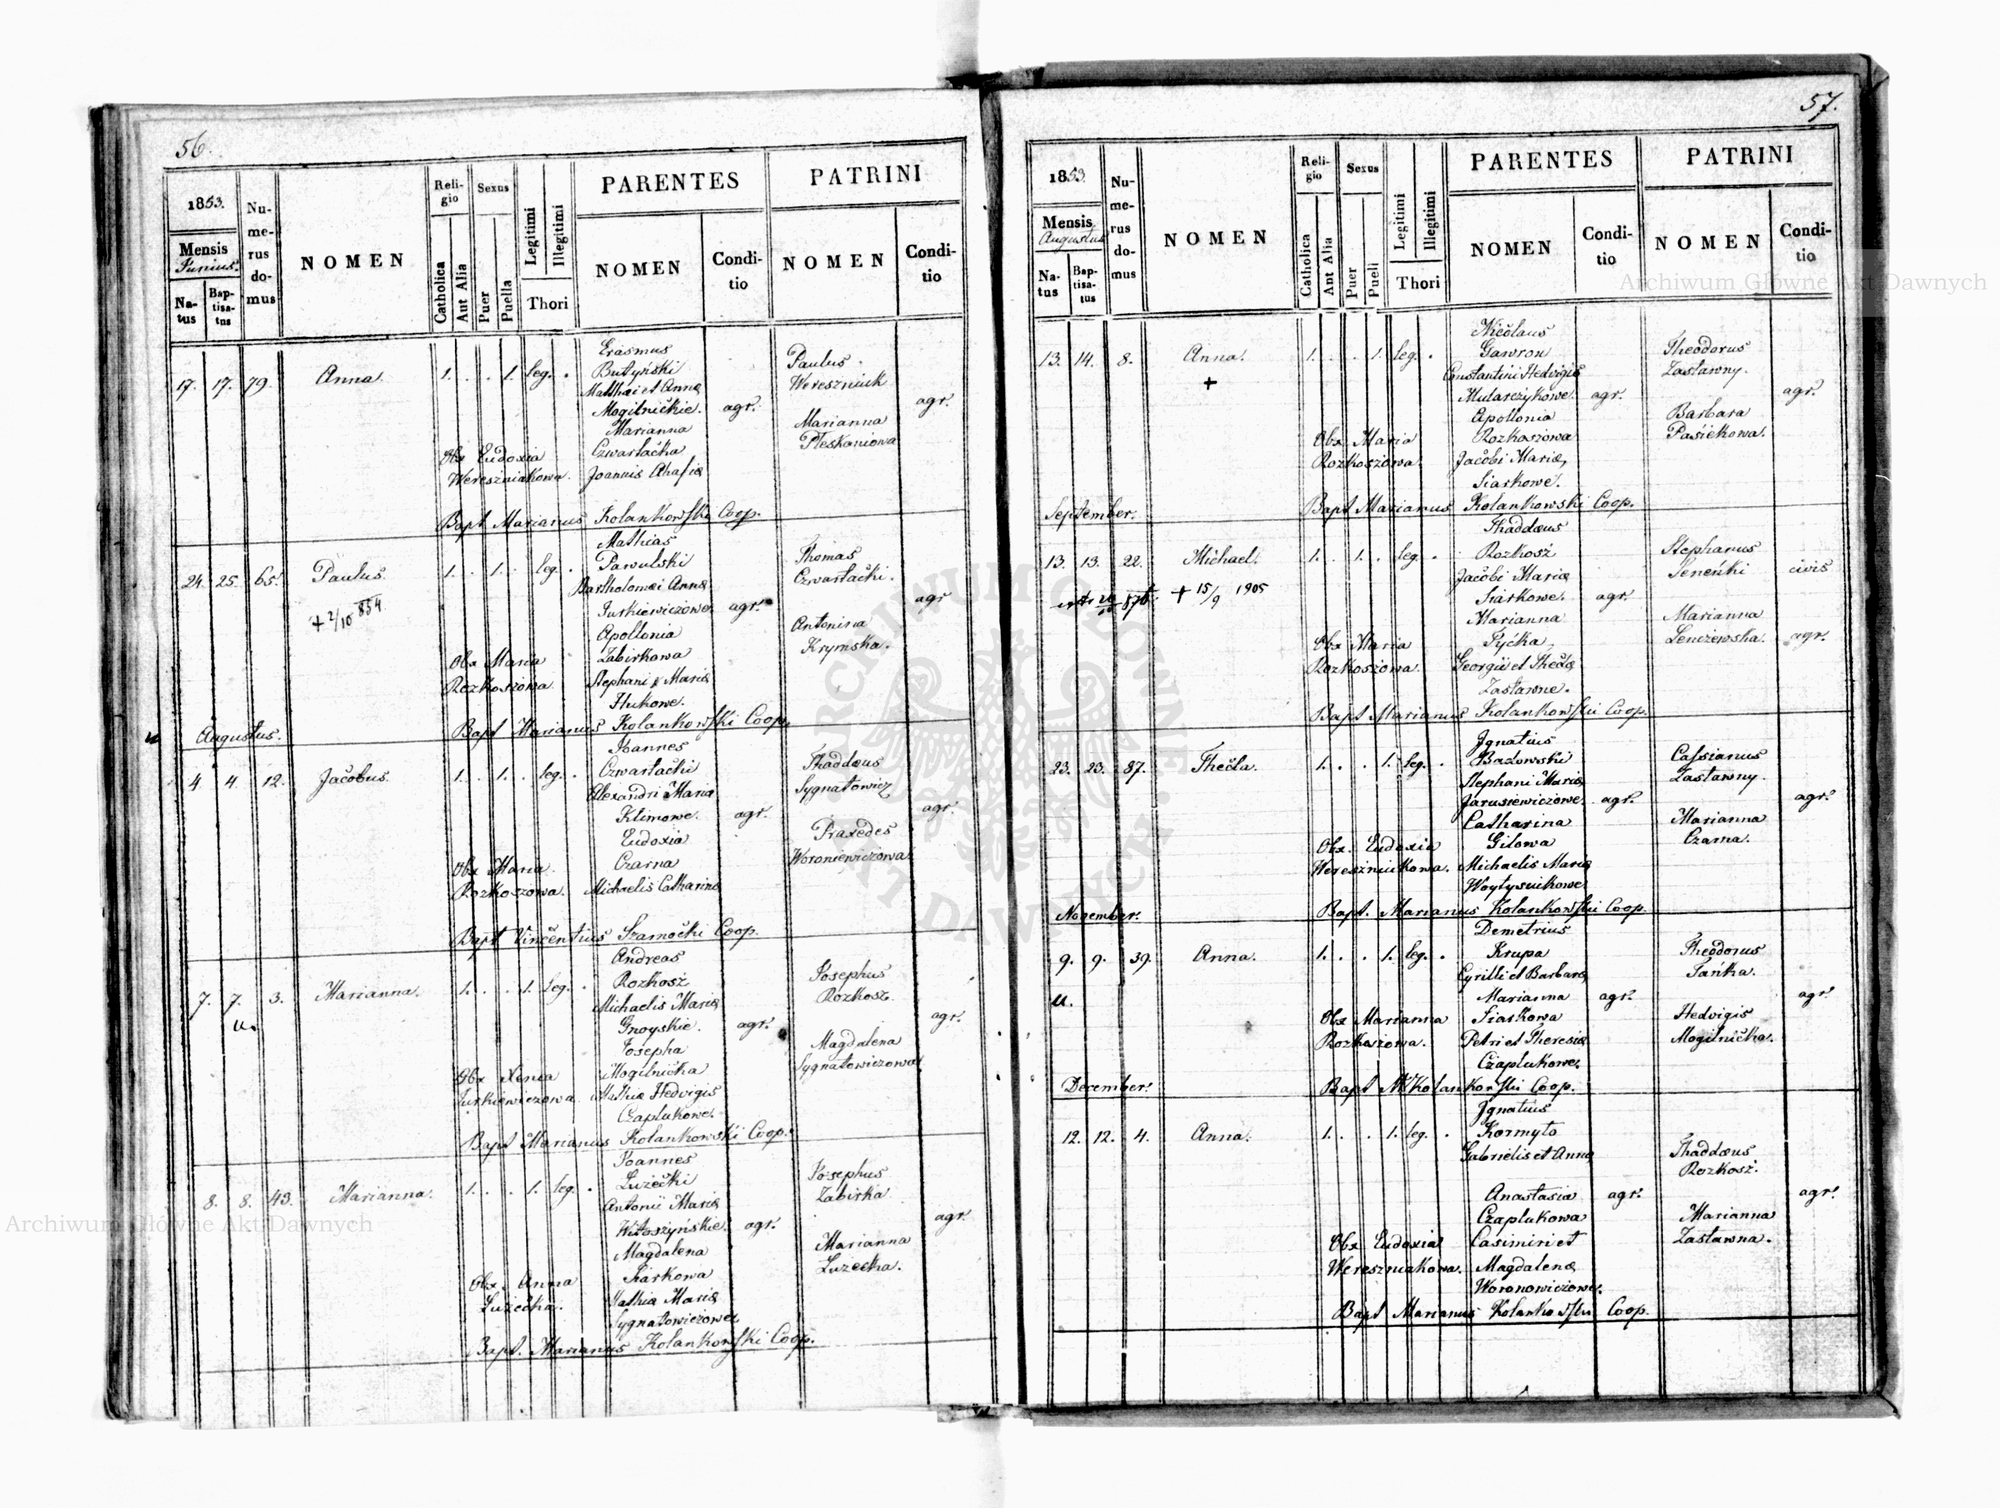 56.
1853.
Mensis
Junius.
Na-
tus
Bap-
tisa-
tus
Nu-
me-
rus
do-
mus
NOMEN
Reli-
gio
Catholica
Aut Alia
Sexus
Puer
Puella
Legitimi
Illegitimi
Thori
PARENTES
NOMEN
Condi-
tio
PATRINI
NOMEN
Condi-
tio
17. 17. 79. Anna 1. . . 1. leg. .
Erasmus
Butyński
Matthæi et Annæ
Mogilnickie. agr.
Marianna
Czwartacka
Joannis Ahafiæ
Paulus
Wereszniuk
agr.
Marianna
Pleskaniowa
Obx Eudoxia
Wereszniakowa.
Bapt Marianus Kolankowski Coop.
24. 25. 65. Paulus 1. . 1. . leg. .
+ 2/10 854
Mathias
Pawulski
Bartholomæi Annæ
Jurkiewiczowe. agr.
Apollonia
Zabirkowa
Stephani & Mariæ
Hukowe.
Thomas
Czwartacki.
agr
Antonina
Krymska.
Obx Maria
Rozkoszowa.
Bapt Marianus Kolankowski Coop.
Augustus.
4 4 12. Jacobus. 1. . 1. . leg. .
Joannes
Czwartacki
Alexandri Mariæ
Klimowe. agr.
Eudoxia
Czarna
Michaelis Catharinæ
Thaddæus
Sygnatowicz
agr.
Praxedes
Woroniewiczowa.
Obx Maria
Rozkoszowa.
Bapt Vincentius Szamocki Coop.
7. 7. 3. Marianna. 1. . . 1. leg. .
u.
Andreas
Rozkosz
Michaelis Mariæ
Gnoyskie. agr.
Josepha
Mogilnicka
Hedvigis
Czaplukowe.
Josephus
Rozkosz.
agr.
Magdalena
Sygnatowiczowa
Obx Xenia
Jurkiewiczowa
Bapt Marianus Kolankowski Coop.
8. 8. 43. Marianna. 1. . . 1. leg. .
Joannes
Luzecki
Antonii Mariæ
Witoszyńskie. agr.
Magdalena
Siarkowa
Mathiæ Mariæ
Sygnatowiczowe
Josephus
Zabirka
agr.
Marianna
Luzecka.
Obx. Anna
Luzecka.
Bapt. Marianus Kolankowski Coop.
57.
1853.
Mensis
Augustus
Na-
tus
Bap-
tisa-
tus
Nu-
me-
rus
do-
mus
NOMEN
Reli-
gio
Catholica
Aut Alia
Sexus
Puer
Pueli
Legitimi
Illegitimi
Thori
PARENTES
NOMEN
Condi-
tio
PATRINI
NOMEN
Condi-
tio
13. 14. 8. Anna. 1. . . 1. leg. .
+
Nicolaus
Gawron
Constantini Hedvigis
Mularczykowe. agr.
Apollonia
Rozkoszowa
Jacobi Mariæ,
Siarkowe.
Theodorus
Zastawny.
agr.
Barbara
Pasiekowa.
Obx Maria
Rozkoszowa
Bapt Marianus Kolankowski Coop.
September.
13. 13. 22. Michael. 1. . 1. . leg. .
+ 15/9 1905
Thaddæus
Rozkosz
Jacobi Mariæ
Siarkowe. agr.
Marianna
Pyćka,
Georgii et Theclæ
Zastawne.
Stephanus
civis
Marianna
agr.
Obx Maria
Rozkoszowa.
Bapt Marianus Kolankowski Coop.
23. 23. 87. Thecla. 1. . . 1. leg. .
Ignatius
Bazowski
Stephani Mariæ
Jarusiewiczowe. agr.
Catharina
Gilowa
Michaelis Mariæ
Woytysiukowe
Cassianus
Zastawny.
agr.
Marianna
Czarna.
Obx. Eudoxia
Wereszniukowa.
Bapt. Marianus Kolankowski Coop.
November.
9. 9. 39. Anna. 1. . . 1. leg. .
u.
Demetrius
Krupa
Cyrilli et Barbaræ
Marianna agr.
Siarkowa
Petri et Theresiæ
Czaplukowe.
Theodorus
Tańka.
agr.
Hedvigis
Mogilnicka.
Obx Marianna
Rozkoszowa.
Bapt M Kolankowski Coop.
December.
12. 12. 4. Anna. 1. . . 1. leg. .
Ignatius
Kormyto
Gabrielis et Annæ
Anastasia agr.
Czaplukowa
Casimiri et
Magdalenæ
Woronowiczowe.
Thaddæus
Rozkosz.
agr.
Marianna
Zastawna.
Obx Eudoxia
Wereszniakowa.
Bapt Marianus Kolankowski Coop.
Archiwum Główne Akt Dawnych
Archiwum Główne Akt Dawnych
ARCHIWUM GŁÓWNE AKT DAWNYCH